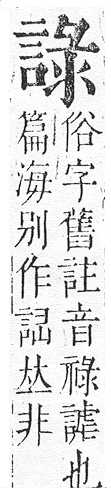 俗字舊註音祿謔也
篇海别作𠀤非